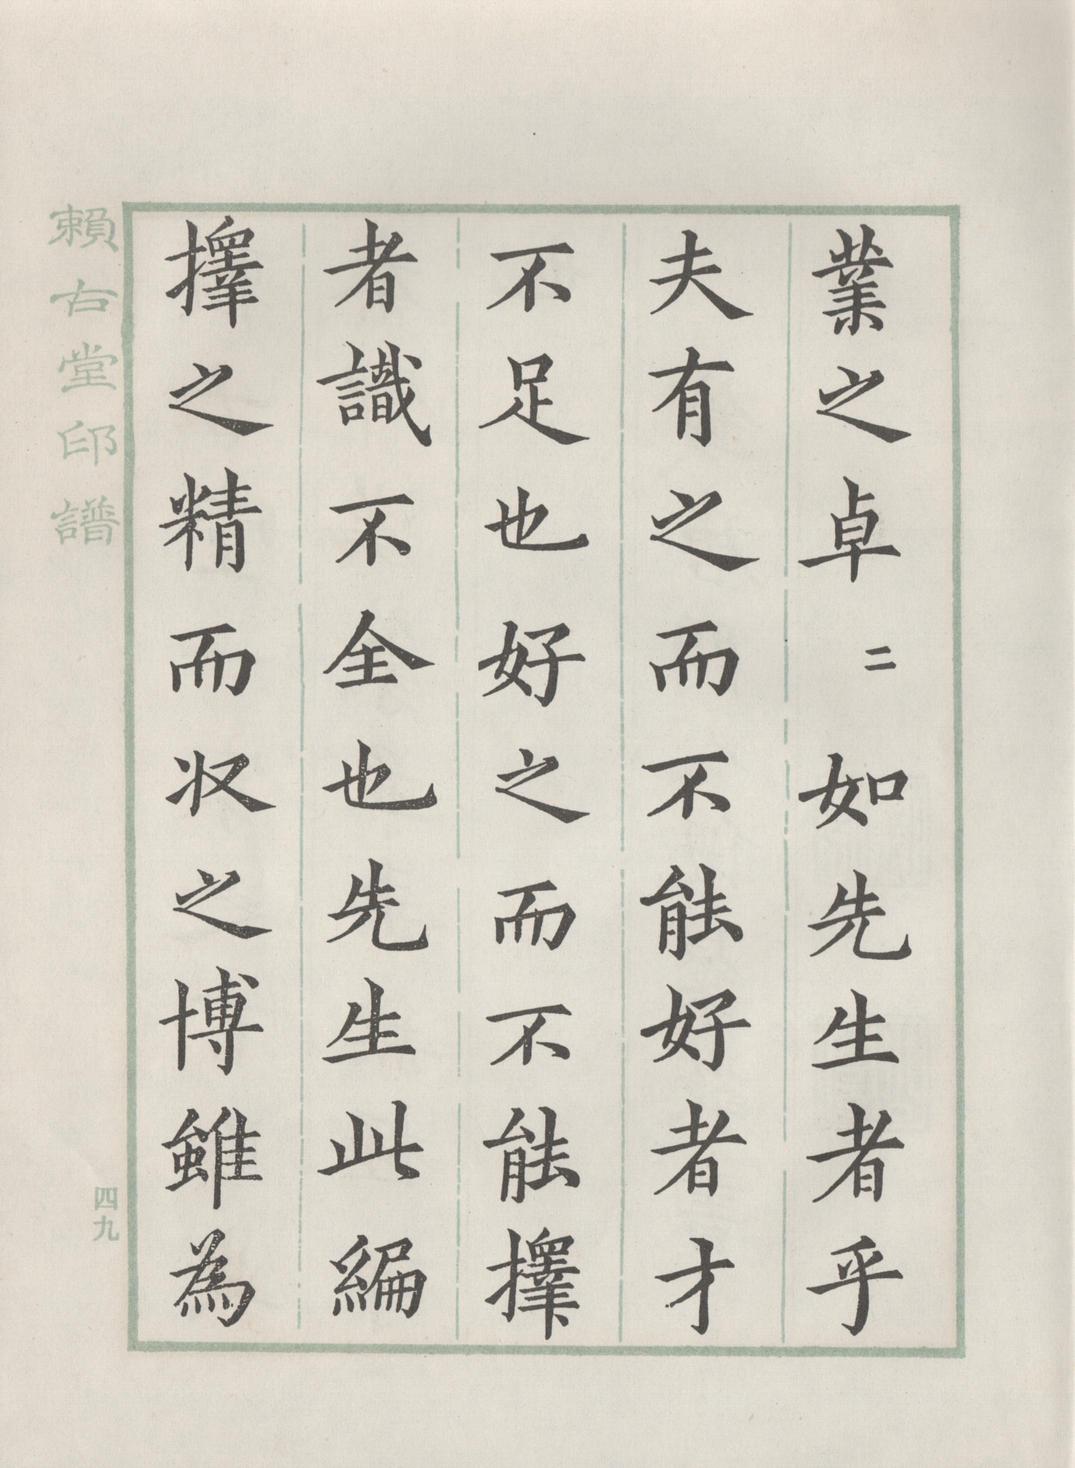 業之卓二如先生者乎
夫有之而不能好者才
不足也好之而不能擇
者識不全也先生此編
擇之精而収之博雖為
賴古堂印譜
四九